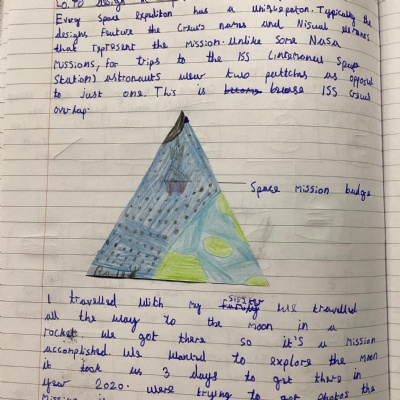 Lo. To design a
Every space expedition has a unique patch. Typically the
designs feature the crew's names and visual elements
that represent the mission. Unlike some Nasa
missions, for trips to the ISS (internanul Space
Station) astronauts wear two pattches as opposed
to just one. This is becouse becuse ISS crews
overlap.
Space mission budge
I travelled with my family sister we travelled
all the way to the moon in a
rocket we got there so it's a mission
accomplished. We wanted to explore the moon
it took us 3 days to get there in
year 2020. were trying to get photos the